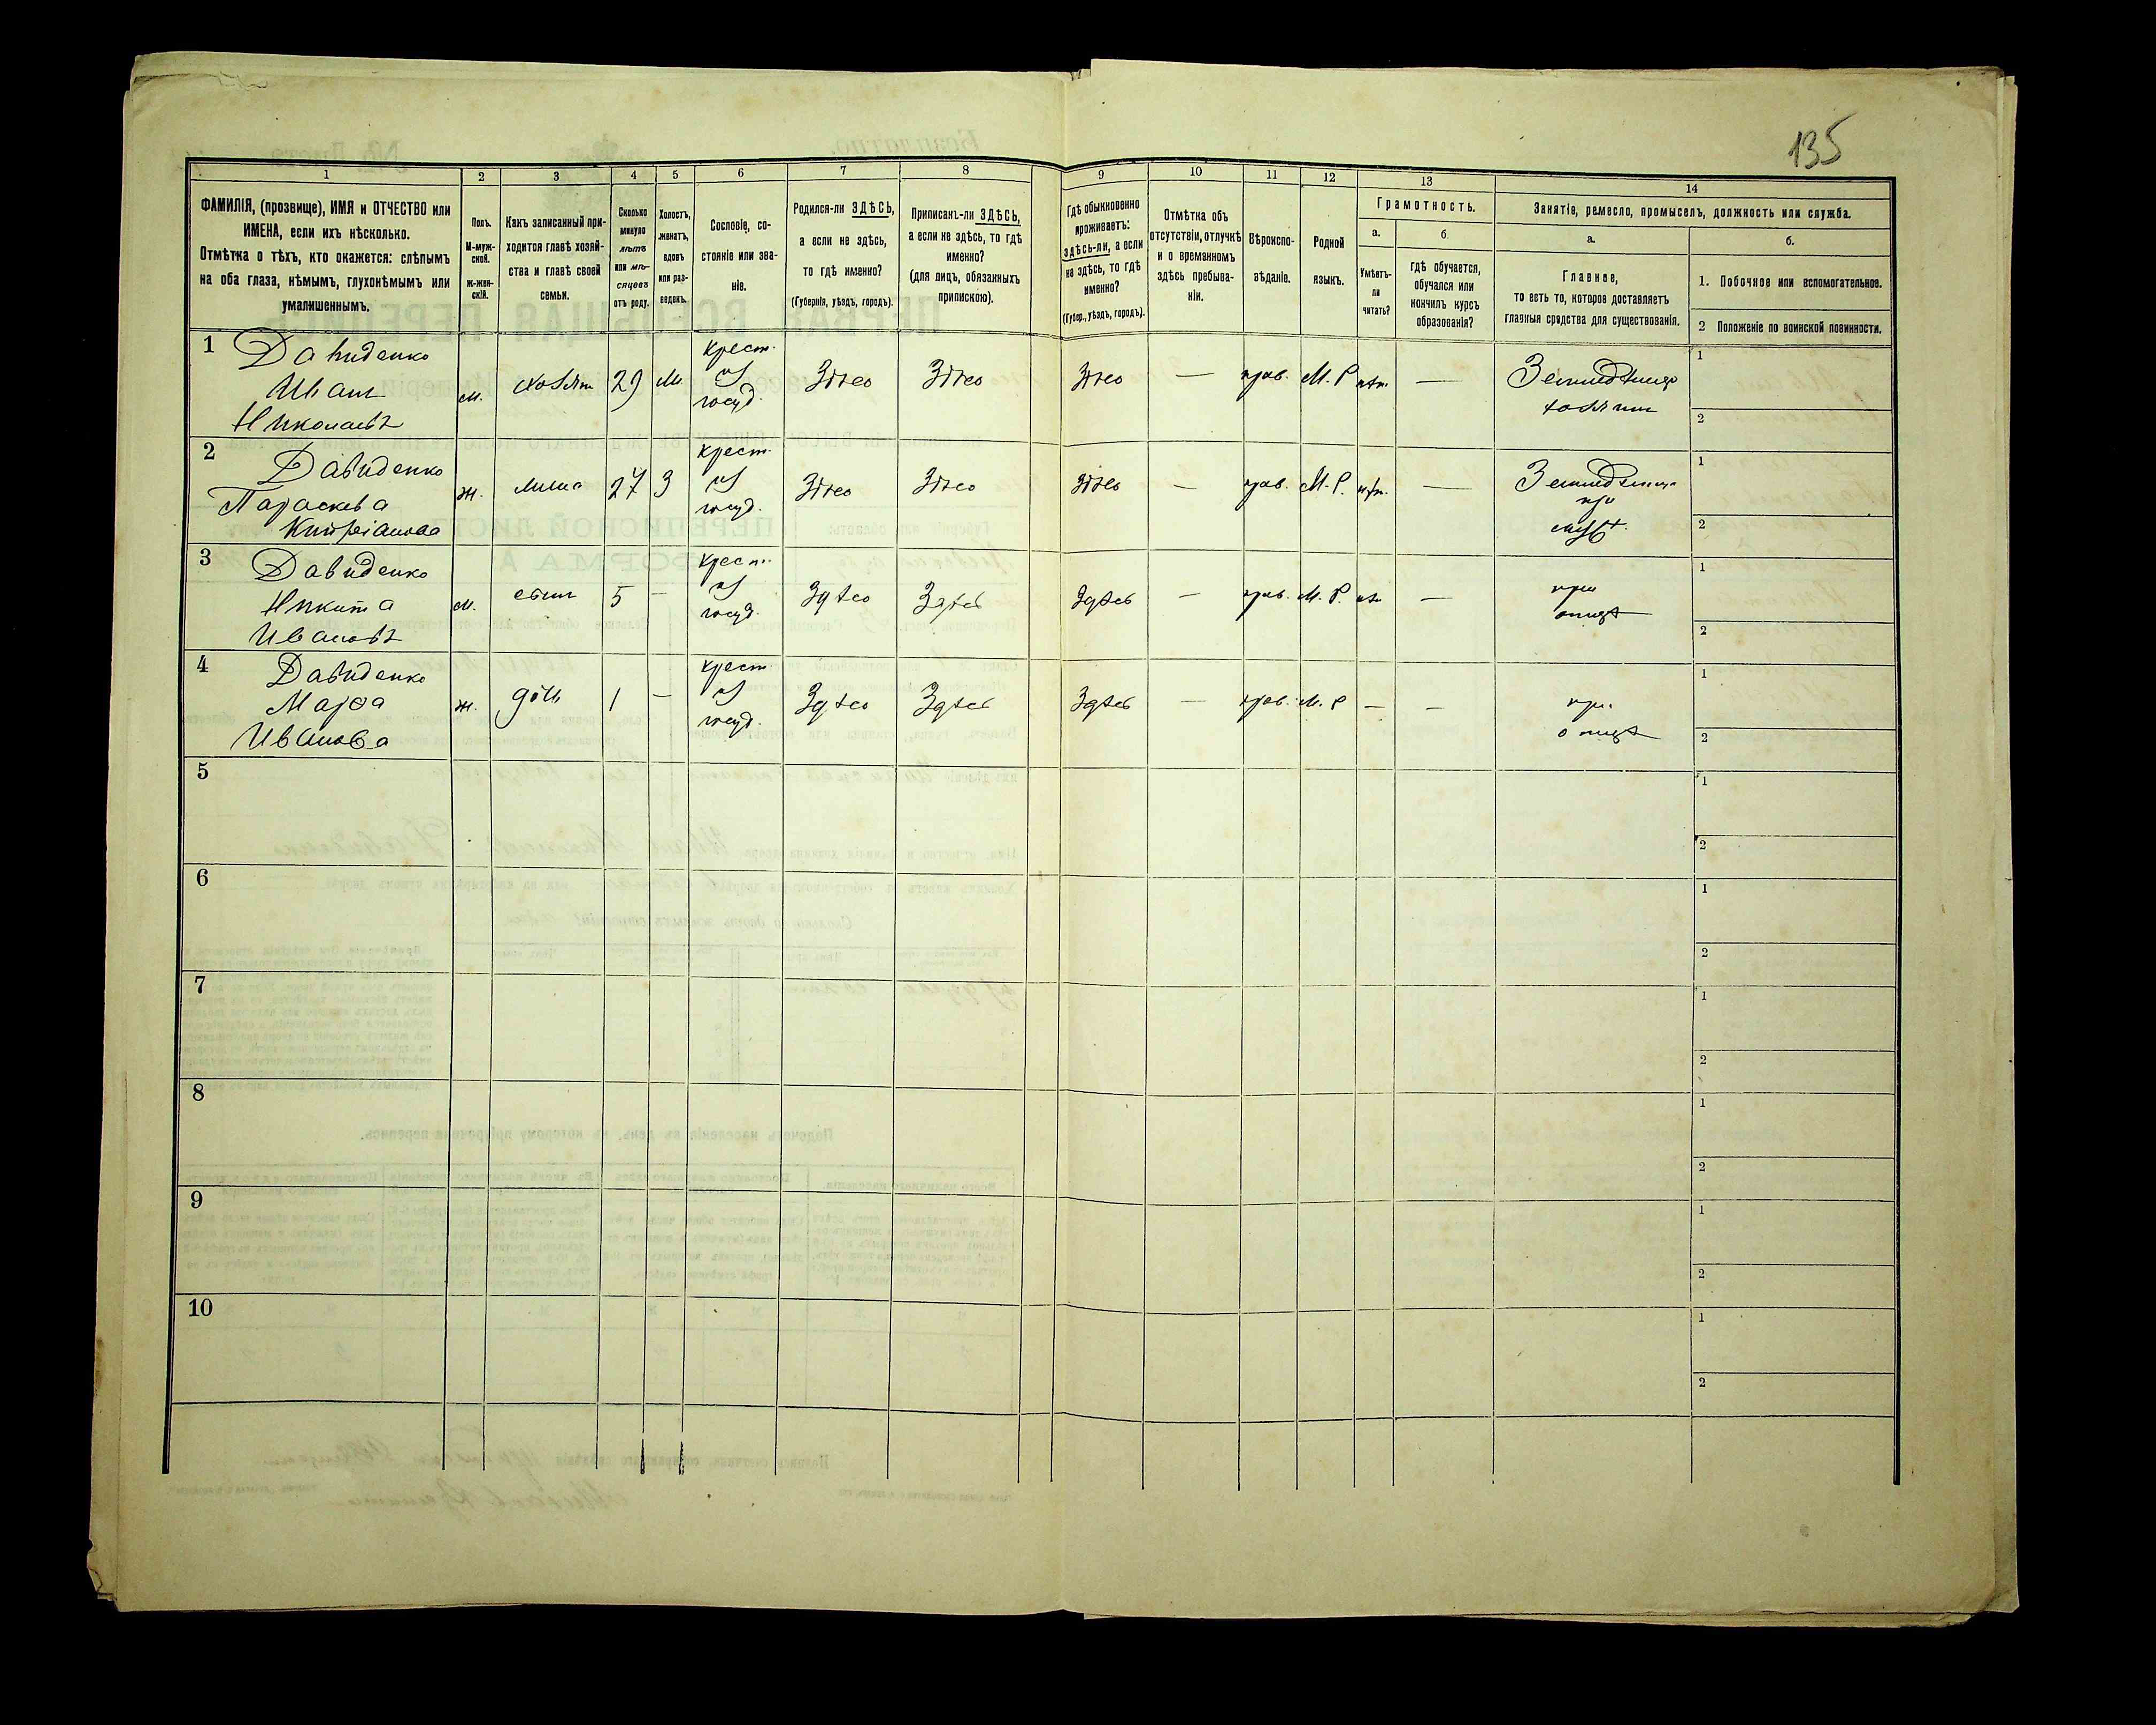 135
1 2 3 4 5 6 7 8 9 10 11 12 13 14
ФАМИЛІЯ, (прозвище), ИМЯ и ОТЧЕСТВО или
ИМЕНА, если ихъ нѣсколько.
Отмѣтка о тѣхъ, кто окажется: слѣпымъ
на оба глаза, нѣмымъ, глухонѣмымъ или
умалишеннымъ.
Полъ.
М-муж-
ской.
ж-жен-
скій.
Какъ записанный при-
ходится главѣ хозяй-
ства и главѣ своей
семьи.
Сколько
минуло
лѣтъ
или мѣ-
сяцевъ
отъ роду.
Холостъ,
женатъ,
вдовъ
или раз-
веденъ.
Сословіе, со-
стояніе или зва-
ніе.
Родился-ли ЗДѢСЬ,
а если не здѣсь,
то гдѣ именно?
(Губернія, уѣздъ, городъ).
Приписанъ-ли ЗДѢСЬ,
а если не здѣсь, то гдѣ
именно?
(для лицъ, обязанныхъ
припискою).
Гдѣ обыкновенно
проживаетъ:
здѣсь-ли, а если
не здѣсь, то гдѣ
именно?
(Губер., уѣздъ, городъ).
Отмѣтка объ
отсутствіи, отлучкѣ
и о временномъ
здѣсь пребыва-
ніи.
Вѣроиспо-
вѣданіе.
Родной
языкъ.
Грамотность.
а.
Умѣетъ-
ли
читать?
б.
гдѣ обучается,
обучался или
кончилъ курсъ
образованія?
Занятіе, ремесло, промыселъ, должность или служба.
а.
Главное,
то есть то, которое доставляетъ
главныя средства для существованія.
б.
1. Побочное или вспомогательное.
2 Положеніе по воинской повинности.
1 Давиденко
Иванъ
Николаевъ
м. хозяин 29 ж.
крест.
из
госуд.
Здѣсь Здѣсь Здѣсь — прав. М. Р. нѣт —
Земледѣлецъ
хозяин
1
2
2 Давиденко
Параскева
Кипріанова
ж. жена 27 З
крест.
из
госуд.
Здѣсь Здѣсь здѣсь — прав. М. Р. нѣт. —
при
мужѣ
1
2
3 Давиденко
Никита
Ивановъ
м. сынъ 5 —
крест.
из
госуд.
Здѣсь Здѣсь Здѣсь — прав. М. Р. нѣт —
при
отцѣ
1
2
4 Давиденко
Марѳа
Иванова
ж. дочь 1 —
крест.
из
госуд.
Здѣсь Здѣсь Здѣсь — прав. М. Р — —
при
отцѣ
1
2
5
1
2
6
1
2
7
1
2
8
1
2
9
1
2
10
1
2